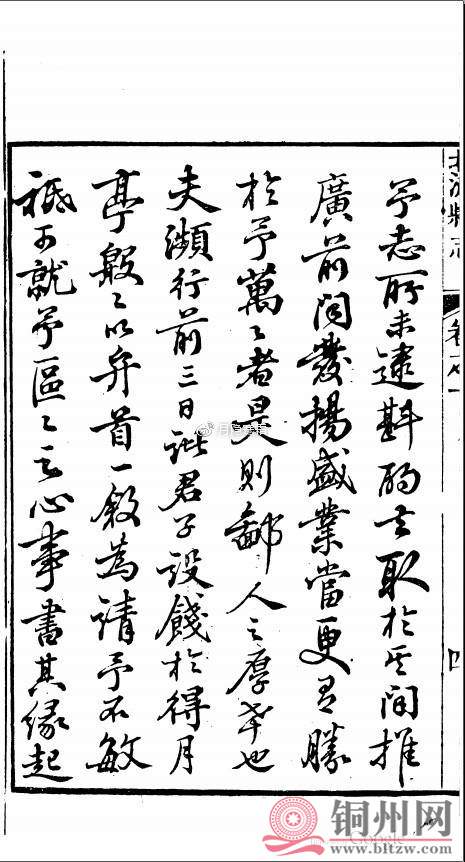 北流縣志
四
予志所未逮斟酌去取於其間推
廣前聞發揚盛業當更有勝
於予萬〻者是則鄙人之厚幸也
夫瀕行前三日諸君子設餞於得月
亭殷〻以弁首一敘為請予不敏
祗可就予區〻之心事書其緣起
铜州网
www.bltzw.com
Google